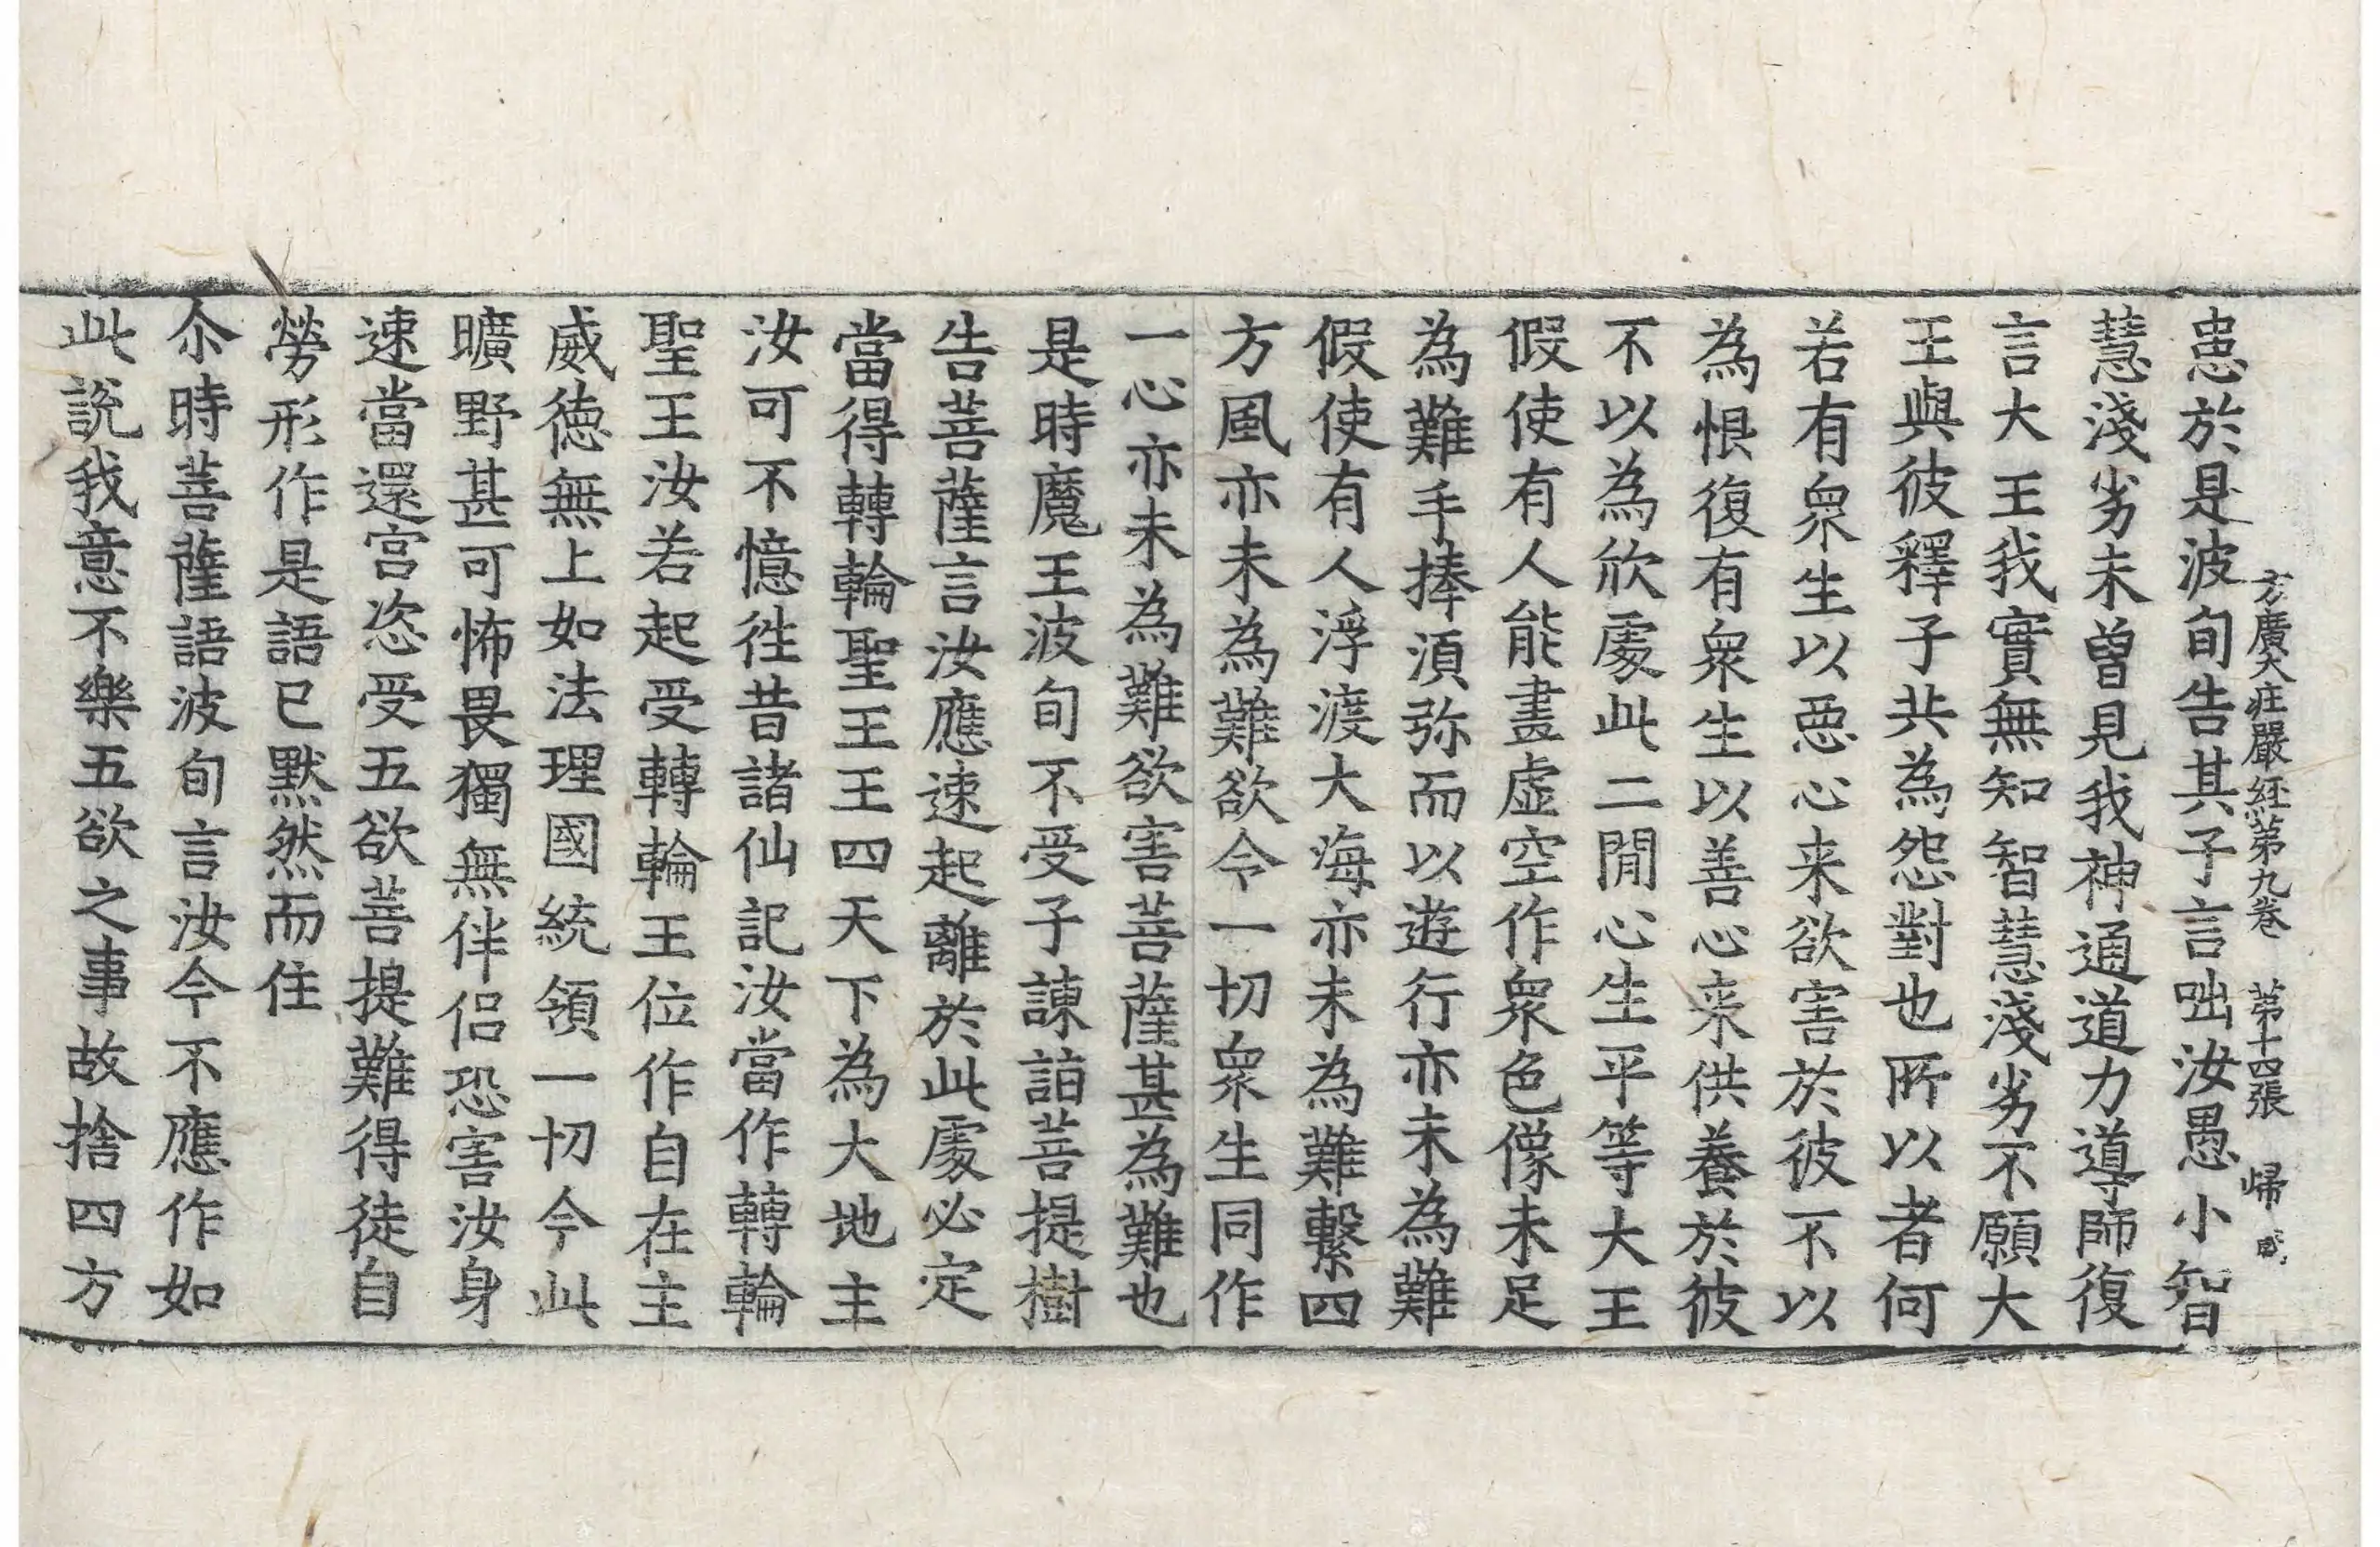 方廣大庄嚴經第九卷　第十四張　歸
恖於是波旬告其子言咄汝愚小智
慧淺劣未曽見我神通道力導師復
言大王我實無知智慧淺劣不願大
王與彼釋子共為怨對也所以者何
若有衆生以惡心来欲害於彼不以
為恨復有衆生以善心来供養於彼
不以為欣處此二閒心生平等大王
假使有人能畫虛空作衆色像未足
為難手捧須弥而以遊行亦未為難
假使有人浮渡大海亦未為難繫四
方風亦未為難欲令一切衆生同作
一心亦未為難欲害菩薩甚為難也
是時魔王波旬不受子諫詣菩提樹
告菩薩言汝應速起離於此處必定
當得轉輪聖王王四天下為大地主
汝可不憶徃昔諸仙記汝當作轉輪
聖王汝若起受轉輪王位作自在主
威德無上如法理國統領一切今此
曠野甚可怖畏獨無伴侣恐害汝身
速當還宫恣受五欲菩提難得徒自
勞形作是語已默然而住
尒時菩薩語波旬言汝今不應作如
此說我意不樂五欲之事故捨四方